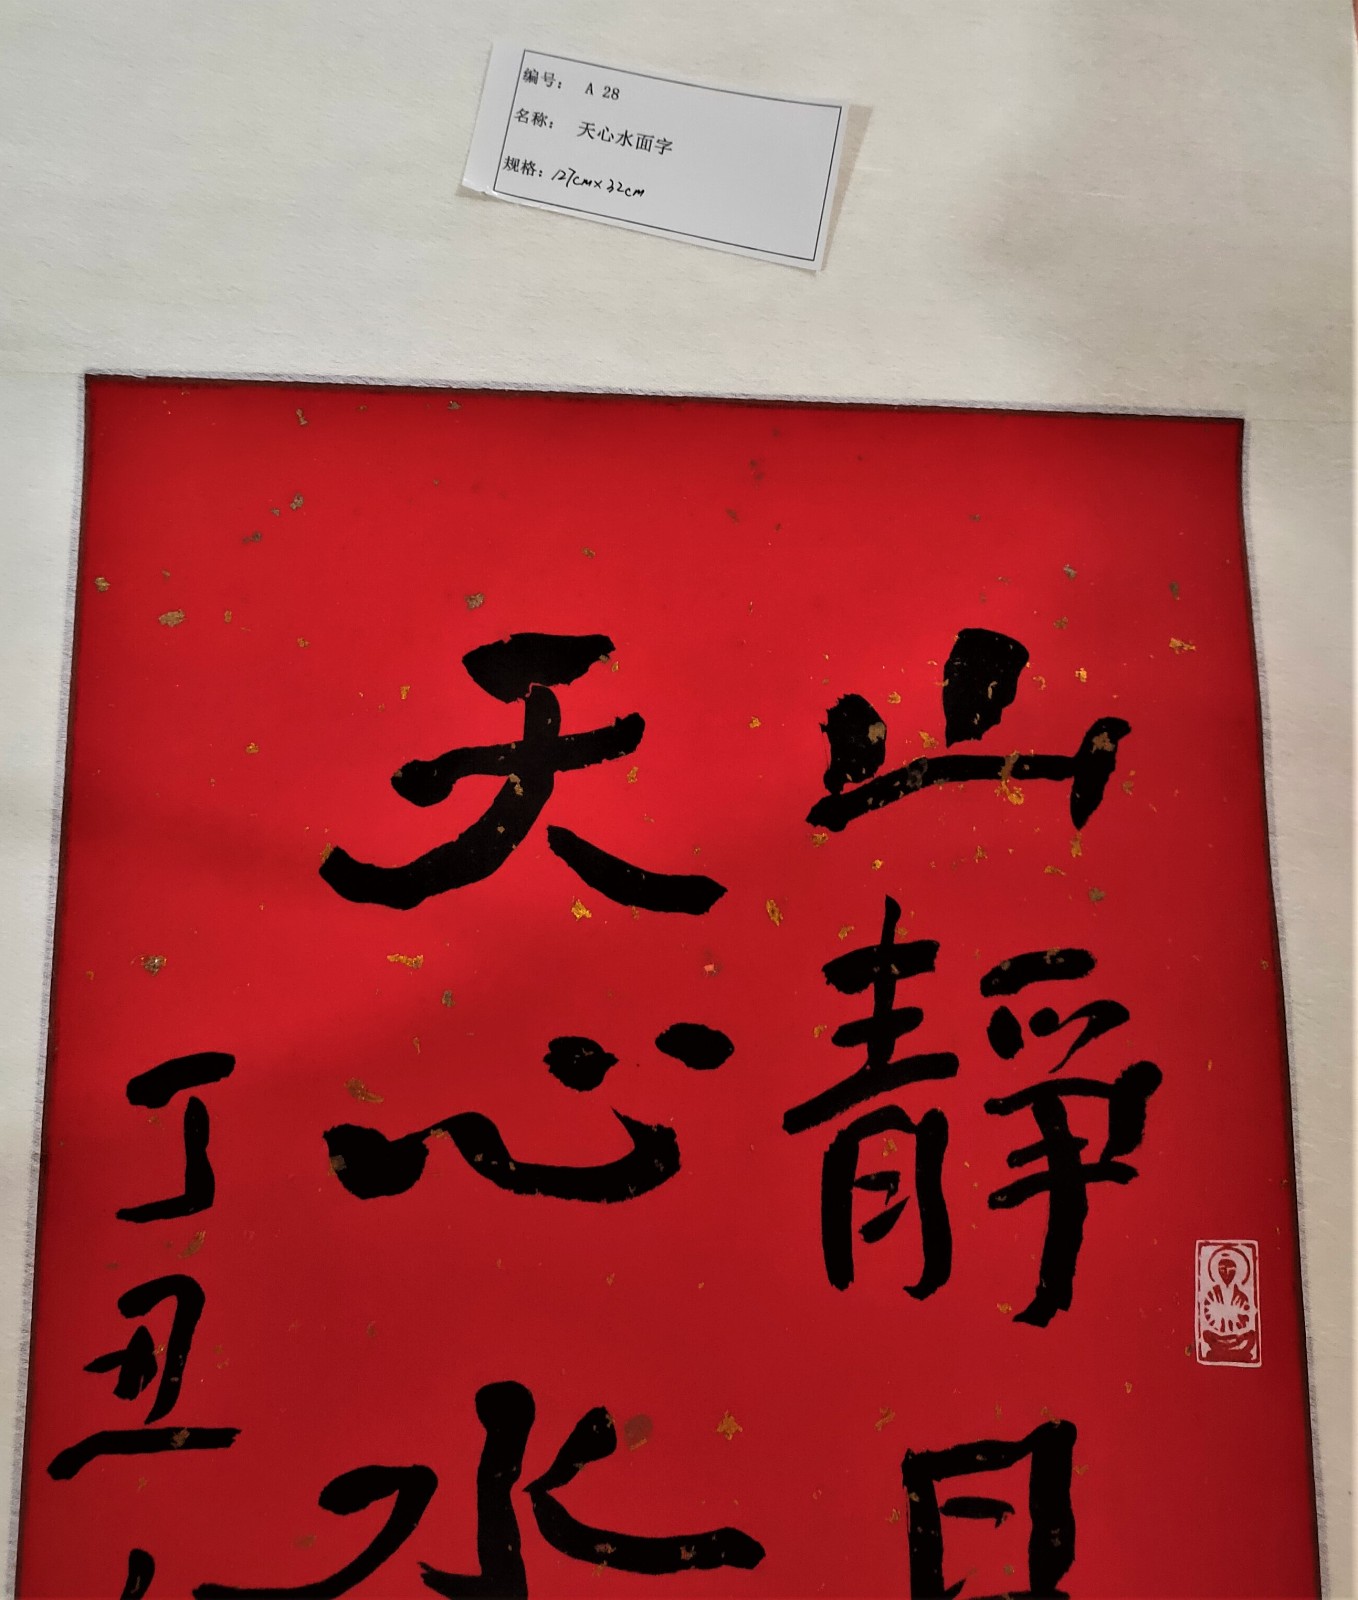 编号： A 28
名称： 天心水面字
规格：127cm×32cm
山靜日
天心水
丁丑